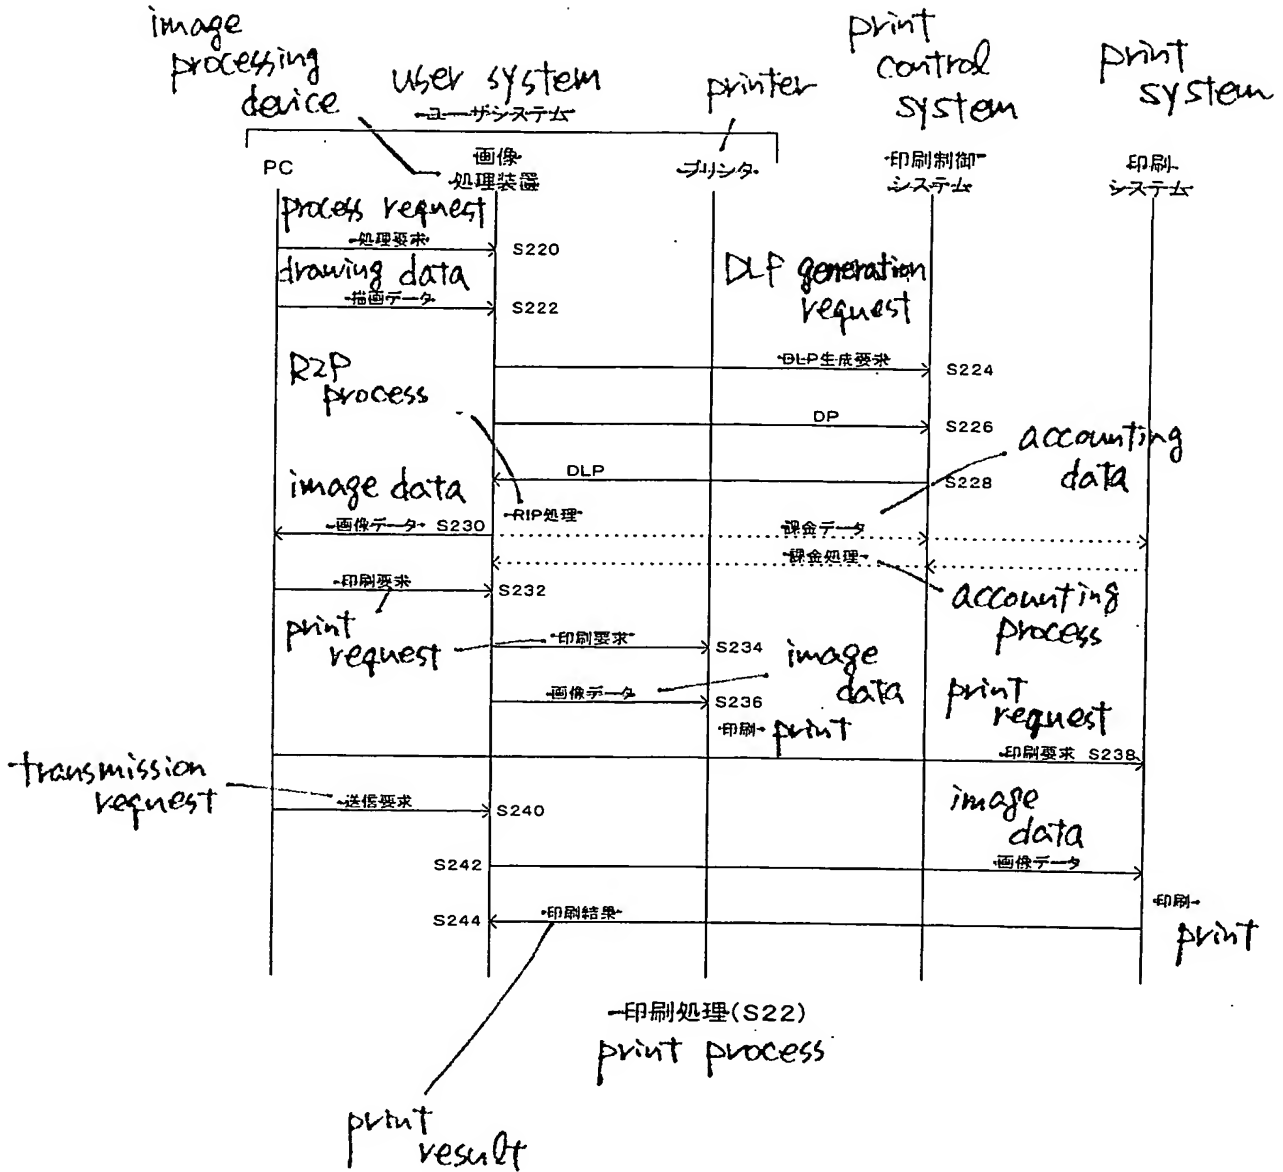 image
processing
device
user system
ユーザシステム
printer
print
control
system
print
system
PC
画像
処理装置
プリンタ
印刷制御
システム
印刷
システム
process request
処理要求
S220
drawing data
描画データ
S222
DLP generation
request
R2P
process
DLP生成要求
S224
DP
S226
accounting
data
DLP
S228
image data
RIP処理
画像データ S230
課金データ
課金処理
印刷要求
S232
accounting
process
print
request
印刷要求
S234
image
data
画像データ
S236
print
request
印刷
print
印刷要求 S238
transmission
request
送信要求
S240
image
data
S242
画像データ
印刷
print
S244
印刷結果
印刷処理(S22)
print process
print
result